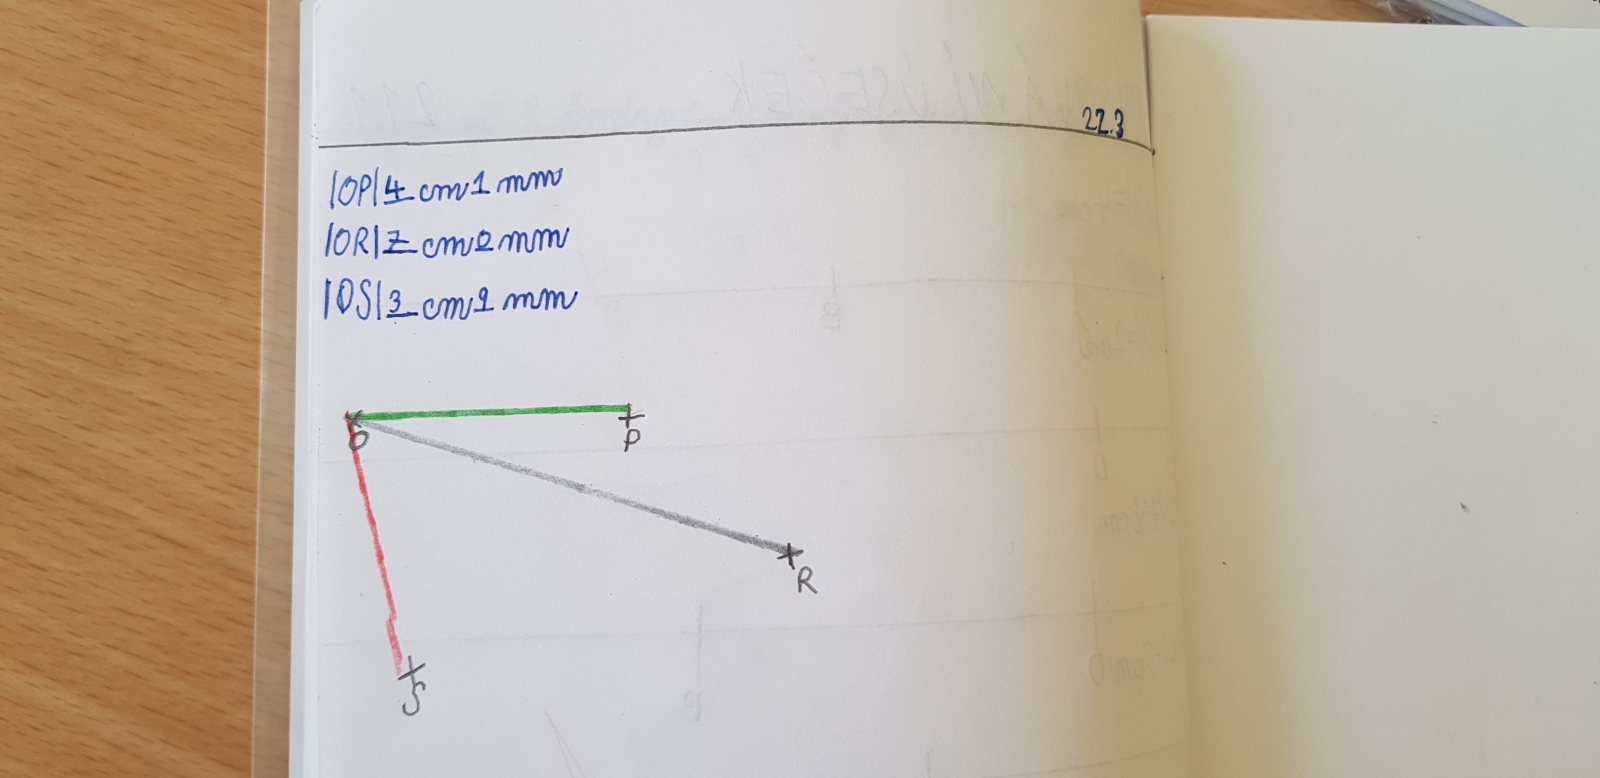 22.3
|OP|4 cm 1 mm
|OR|7 cm 0 mm
|OS|3 cm 9 mm
O
P
R
S